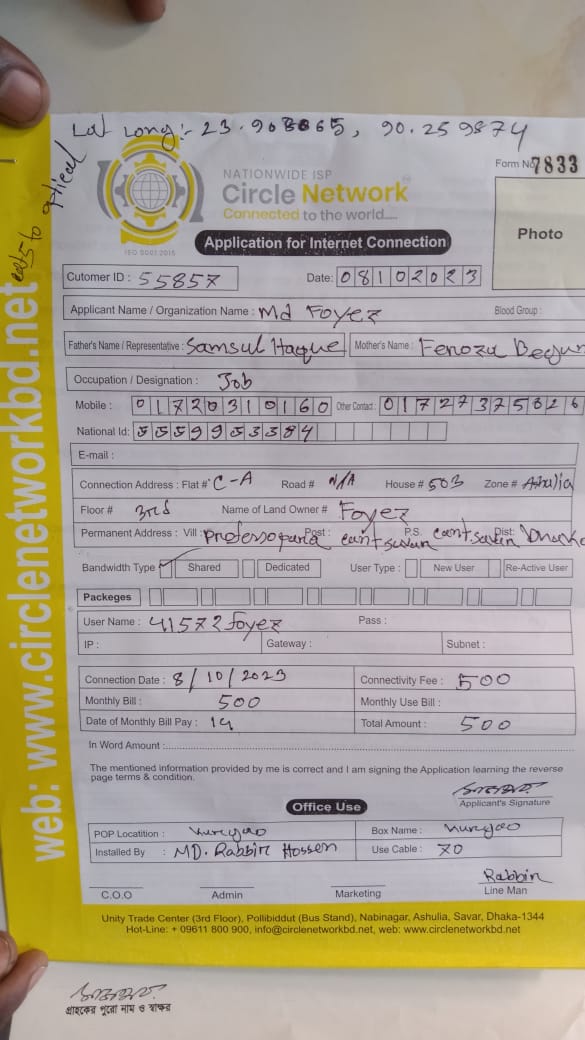 Lat Long:- 23.908065, 90.259874
cat5 to optical
web: www.circlenetworkbd.net
NATIONWIDE ISP
Circle Network
Connected to the world....
ISO 9001:2015
Form No 7833
Photo
Application for Internet Connection
Cutomer ID : 55857 Date: 08102023
Applicant Name / Organization Name : Md Foyez Blood Group :
Father's Name / Representative : Samsul Haque Mother's Name : Feroza Begum
Occupation / Designation : Job
Mobile : 01720310160 Other Contact : 01727375826
National Id: 5559953384
E-mail :
Connection Address : Flat # C-A Road # N/A House # 503 Zone # Ashulia
Floor # 3rd Name of Land Owner # Foyez
Permanent Address : Vill : Post : cant savar P.S. cant savar Dist: Dhaka
Bandwidth Type Shared Dedicated User Type : New User Re-Active User
Packeges
User Name : 41572foyez Pass :
IP : Gateway : Subnet :
Connection Date : 8/10/2023 Connectivity Fee : 500
Monthly Bill : 500 Monthly Use Bill :
Date of Monthly Bill Pay : 14 Total Amount : 500
In Word Amount :
The mentioned information provided by me is correct and I am signing the Application learning the reverse
page terms & condition.
Applicant's Signature
Office Use
POP Locatition : Box Name :
Installed By : MD. Rabbir Hossen Use Cable : 70
Rabbin
C.O.O Admin Marketing Line Man
Unity Trade Center (3rd Floor), Pollibiddut (Bus Stand), Nabinagar, Ashulia, Savar, Dhaka-1344
Hot-Line: + 09611 800 900, info@circlenetworkbd.net, web: www.circlenetworkbd.net
গ্রাহকের পুরো নাম ও স্বাক্ষর